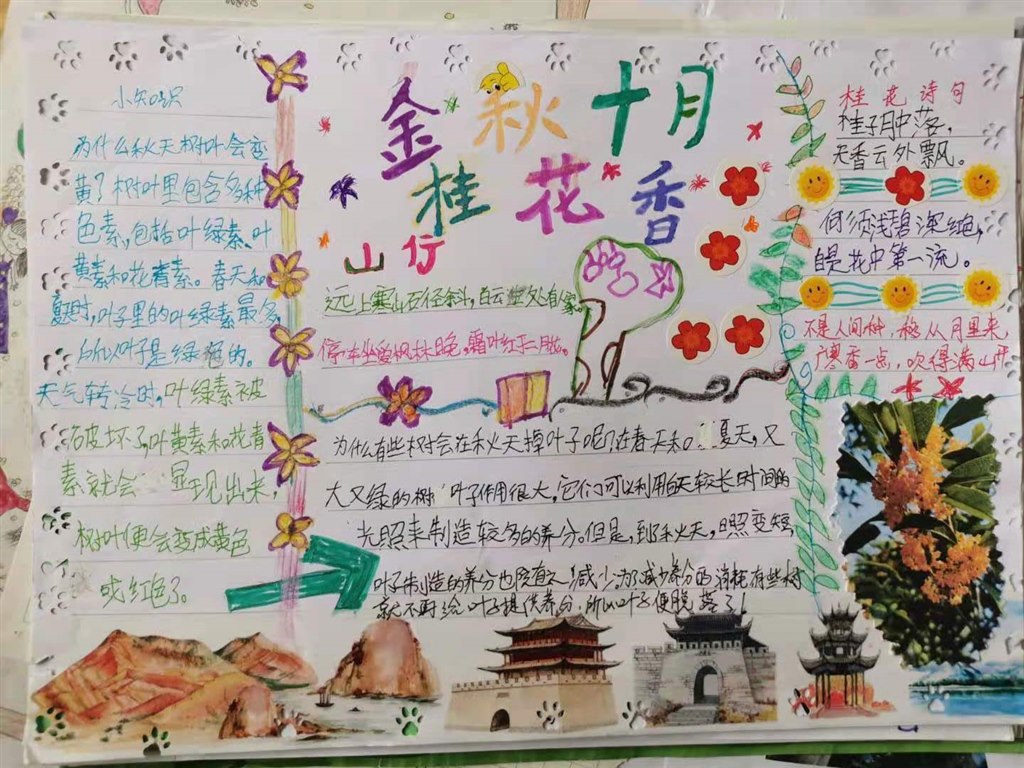 金秋十月
桂花香
小知识
为什么秋天树叶会变
黄?树叶里包含多种
色素,包括叶绿素、叶
黄素和花青素。春天和
夏时,叶子里的叶绿素最多,
所以叶子是绿色的。
天气转冷时,叶绿素被
破坏了,叶黄素和花青
素就会显现出来,
树叶便会变成黄色
或红色了。
山行
远上寒山石径斜,白云生处有人家。
停车坐爱枫林晚,霜叶红于二月花。
为什么有些树会在秋天掉叶子呢?在春天和夏天,又
大又绿的树叶子作用很大,它们可以利用白天较长时间的
光照来制造较多的养分。但是,到秋天,日照变短,
叶子制造的养分也会减少,为了减少养分的消耗有些树
就不再给叶子提供养分,所以叶子便脱落了!
桂花诗句
桂子月中落,
天香云外飘。
何须浅碧深红色,
自是花中第一流。
不是人间种,移从月里来,
广寒香一点,吹得满山开